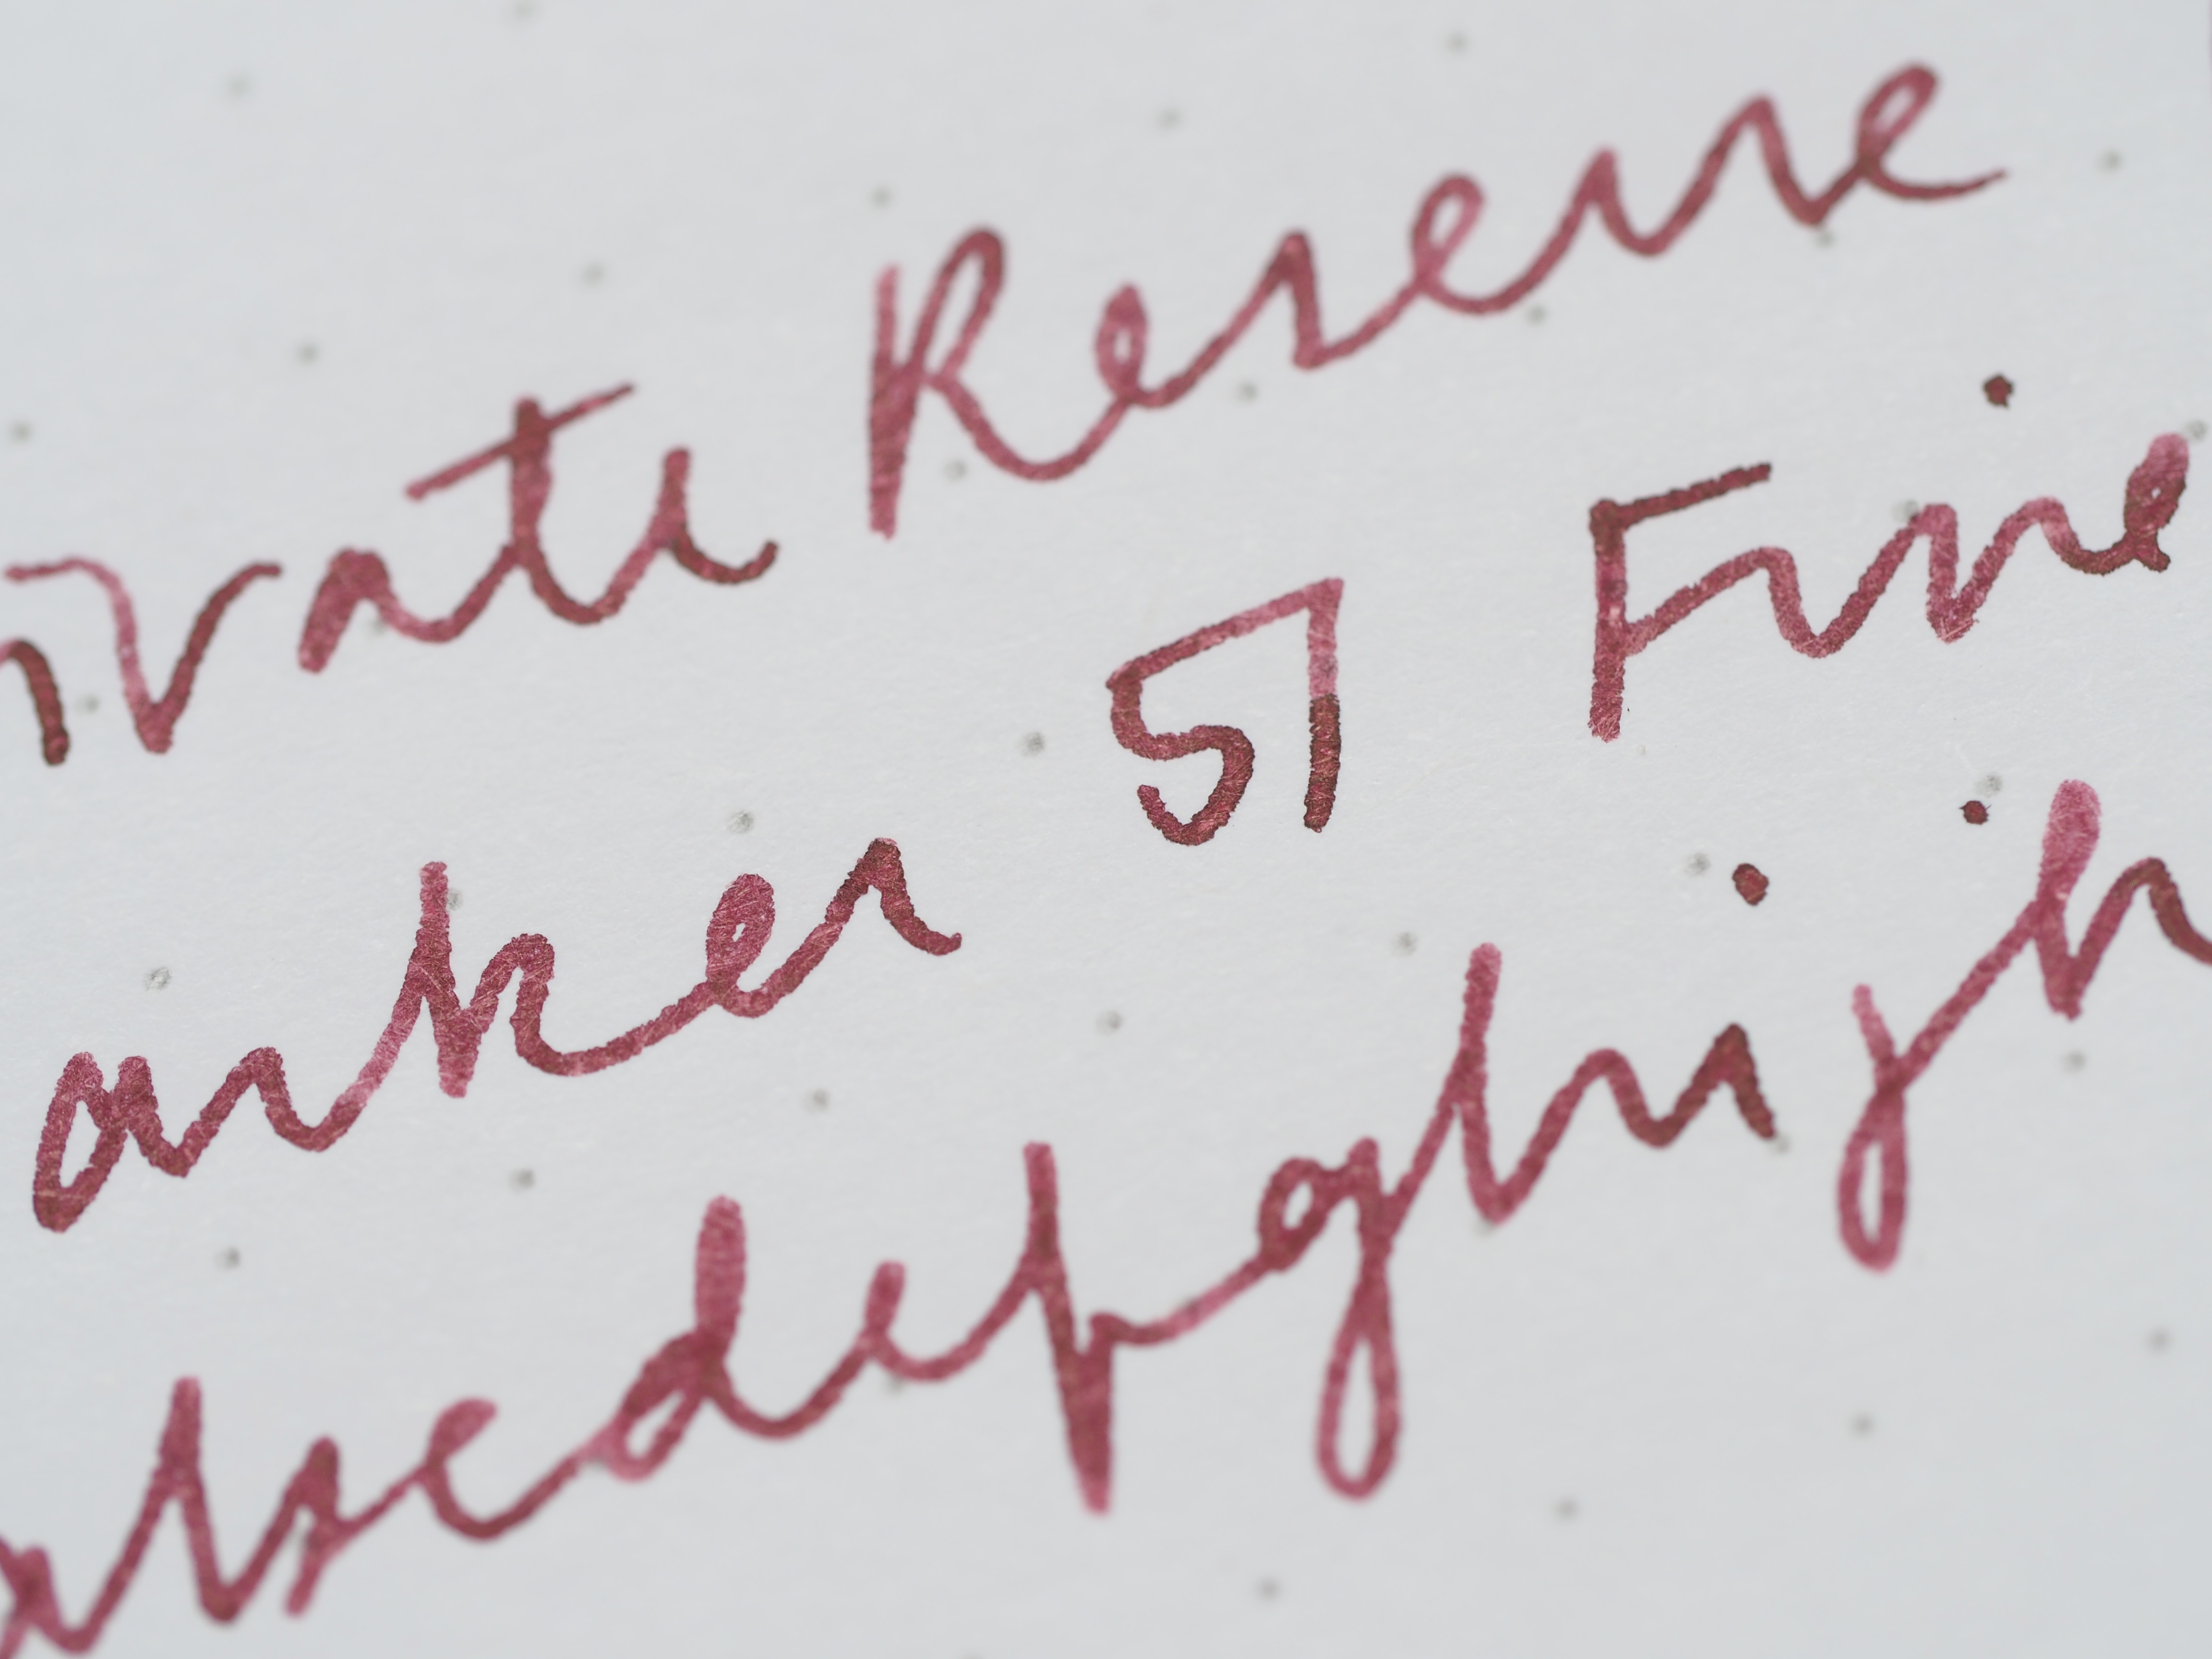 ivate Reserve
arker 51 Fine
abcdefghijk